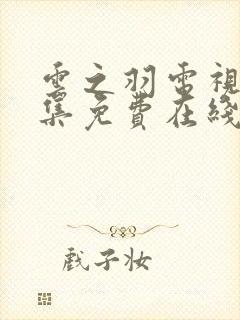 雲之羽電視
集免費在綫
戲子妝